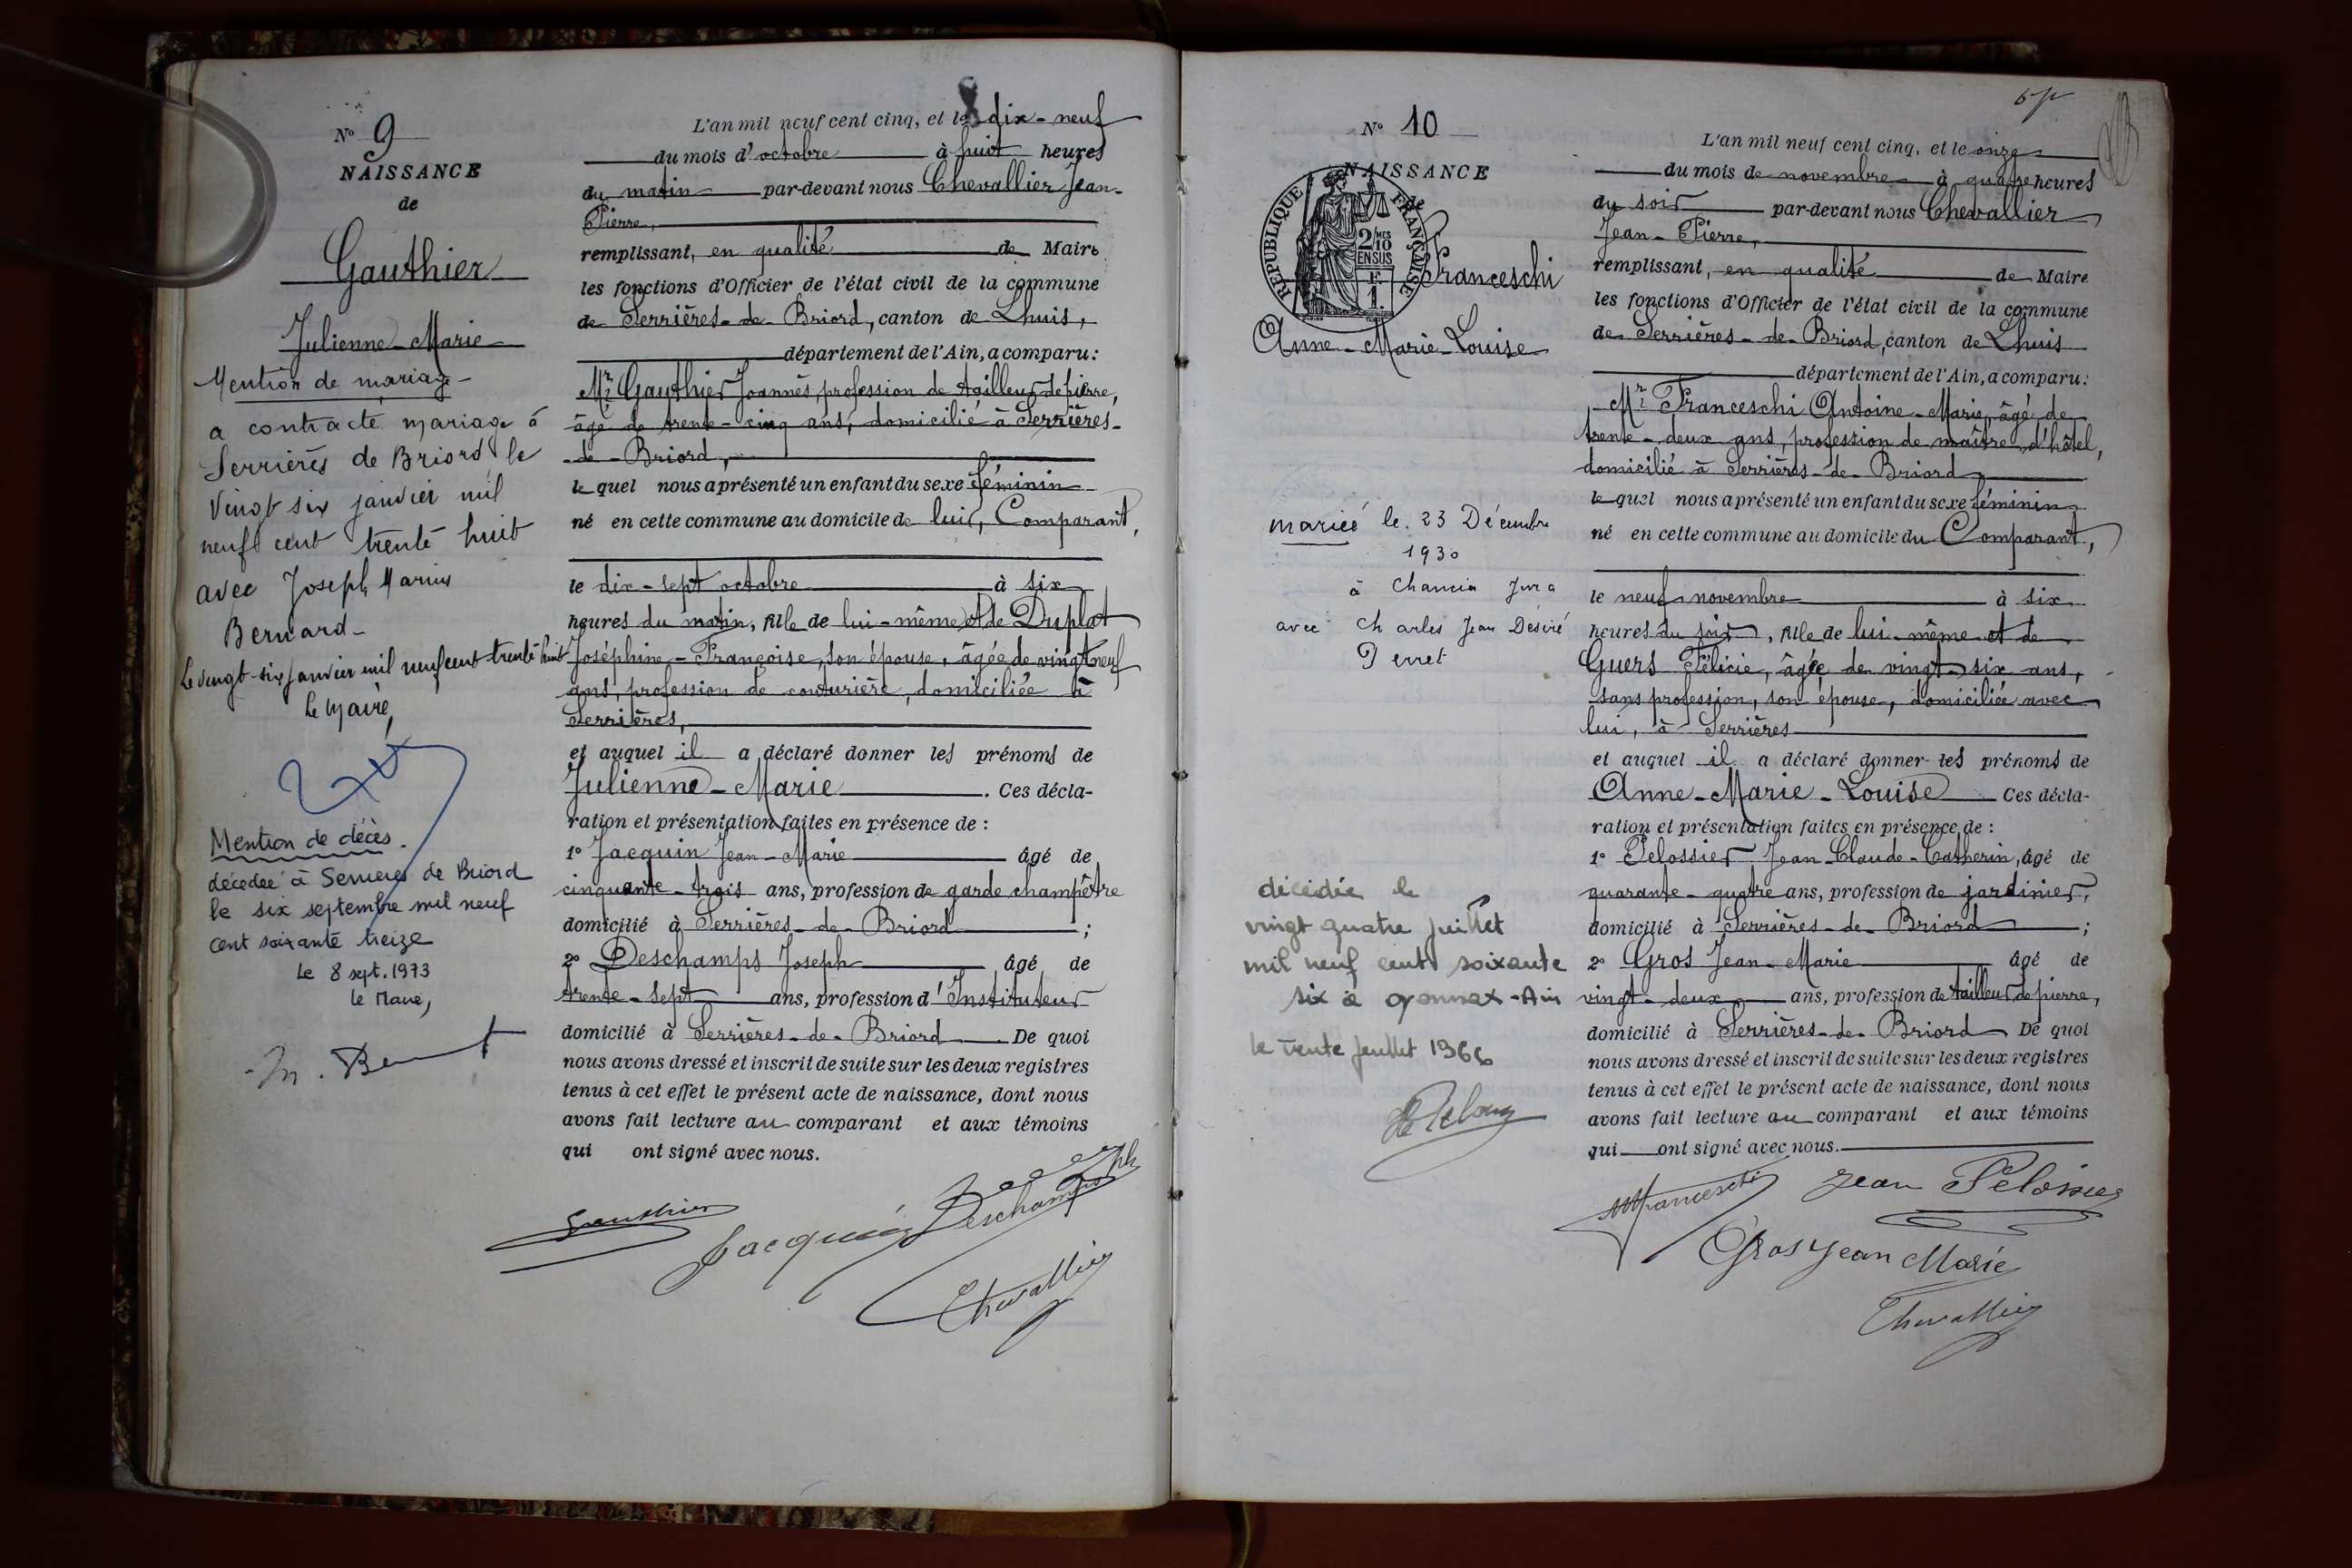 N° 9
NAISSANCE
de
Gauthier
Julienne-Marie
Mention de mariage-
a contracté mariage à
Serrières de Briord le
Vingt six janvier mil
neuf cent trente huit
avec Joseph Marius
Bernard-
Le vingt-six janvier mil neuf cent trente huit
Le Maire,
Mention de décès.
décédée à Serrières de Briord
le six septembre mil neuf
cent soixante treize
Le 8 sept. 1973
le Maire,
L'an mil neuf cent cinq, et le dix-neuf
du mois d'octobre à huit heures
du matin par-devant nous Chevallier Jean-
Pierre,
remplissant, en qualité de Maire
les fonctions d'Officier de l'état civil de la commune
de Serrières-de-Briord, canton de Lhuis,
département de l'Ain, a comparu:
Mr Gauthier Joannès, profession de tailleur de pierre,
âgé de trente-cinq ans, domicilié à Serrières-
de-Briord,
lequel nous a présenté un enfant du sexe féminin
né en cette commune au domicile de lui, Comparant,
le dix-sept octobre à six
heures du matin, fille de lui-même et de Duplat
Joséphine-Françoise, son épouse, âgée de vingt neuf
ans, profession de couturière, domiciliée à
Serrières,
et auquel il a déclaré donner les prénoms de
Julienne-Marie. Ces décla-
ration et présentation faites en présence de :
1° Jacquin Jean-Marie âgé de
cinquante-trois ans, profession de garde champêtre
domicilié à Serrières-de-Briord ;
2° Deschamps Joseph âgé de
trente-sept ans, profession d'Instituteur
domicilié à Serrières-de-Briord. De quoi
nous avons dressé et inscrit de suite sur les deux registres
tenus à cet effet le présent acte de naissance, dont nous
avons fait lecture au comparant et aux témoins
qui ont signé avec nous.
Gauthier
Jacquin
Deschamps
Chevallier
N° 10
NAISSANCE
de
REPUBLIQUE FRANÇAISE
2/10
MES
EN SUS
F.
1.
Franceschi
Anne-Marie-Louise
mariée le 23 Décembre
1930
à Chancia Jura
avec Charles Jean Désiré
Perret
décédée le
vingt quatre juillet
mil neuf cent soixante
six à Oyonnax-Ain
le trente juillet 1966
L'an mil neuf cent cinq, et le onze
du mois de novembre à quatre heures
du soir par-devant nous Chevallier
Jean-Pierre,
remplissant, en qualité de Maire
les fonctions d'Officier de l'état civil de la commune
de Serrières-de-Briord, canton de Lhuis
département de l'Ain, a comparu:
Mr Franceschi Antoine-Marie, âgé de
trente-deux ans, profession de maître d'hôtel,
domicilié à Serrières-de-Briord
lequel nous a présenté un enfant du sexe féminin
né en cette commune au domicile du Comparant,
le neuf novembre à six
heures du soir, fille de lui-même et de
Guers Félicie, âgée de vingt-six ans,
sans profession, son épouse, domiciliée avec
lui, à Serrières
et auquel il a déclaré donner les prénoms de
Anne-Marie-Louise Ces décla-
ration et présentation faites en présence de :
1° Pelossier Jean-Claude-Catherin, âgé de
quarante-quatre ans, profession de jardinier,
domicilié à Serrières-de-Briord ;
2° Gros Jean-Marie âgé de
vingt-deux ans, profession de tailleur de pierre,
domicilié à Serrières-de-Briord De quoi
nous avons dressé et inscrit de suite sur les deux registres
tenus à cet effet le présent acte de naissance, dont nous
avons fait lecture au comparant et aux témoins
qui ont signé avec nous.
AMfranceschi
Jean Pelossier
Gros Jean Marie
Chevallier